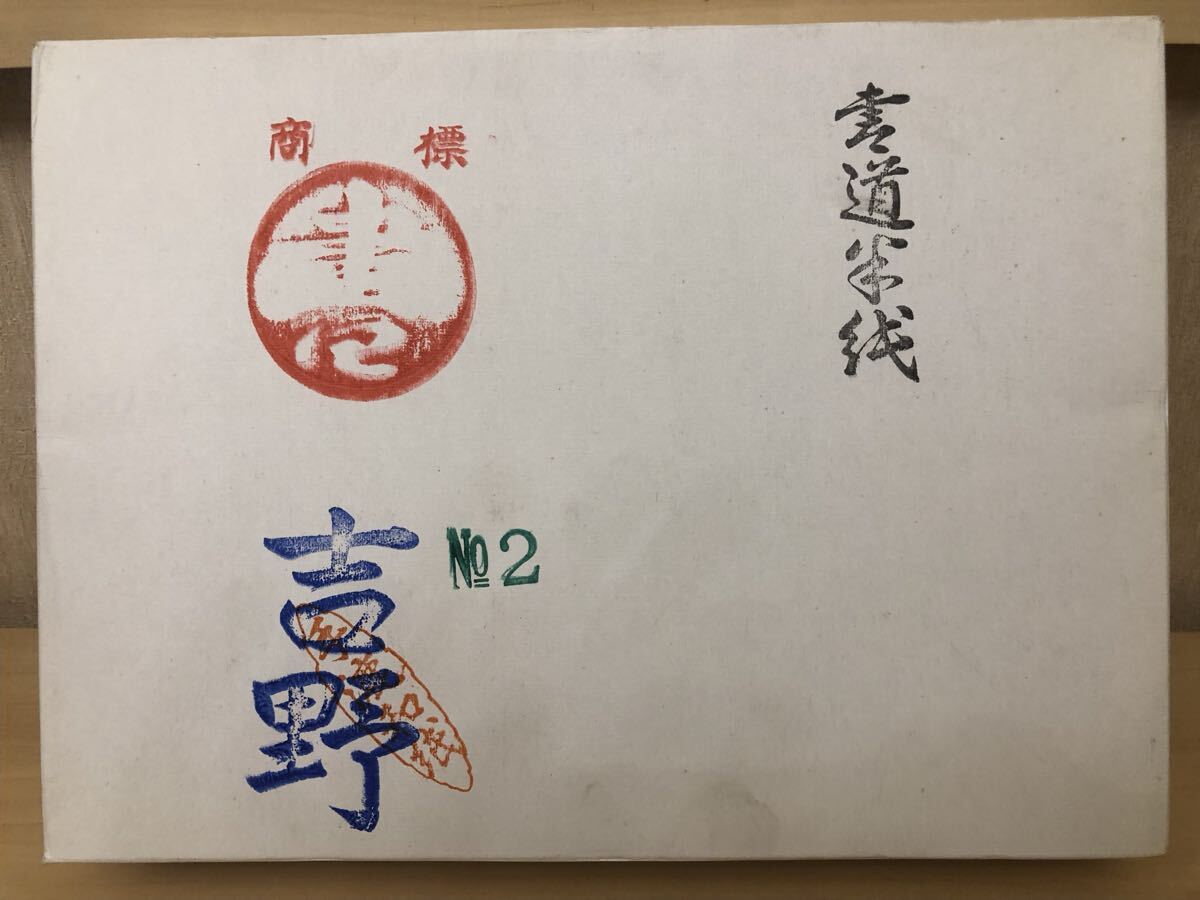 書道半紙
商標
吉野
№2